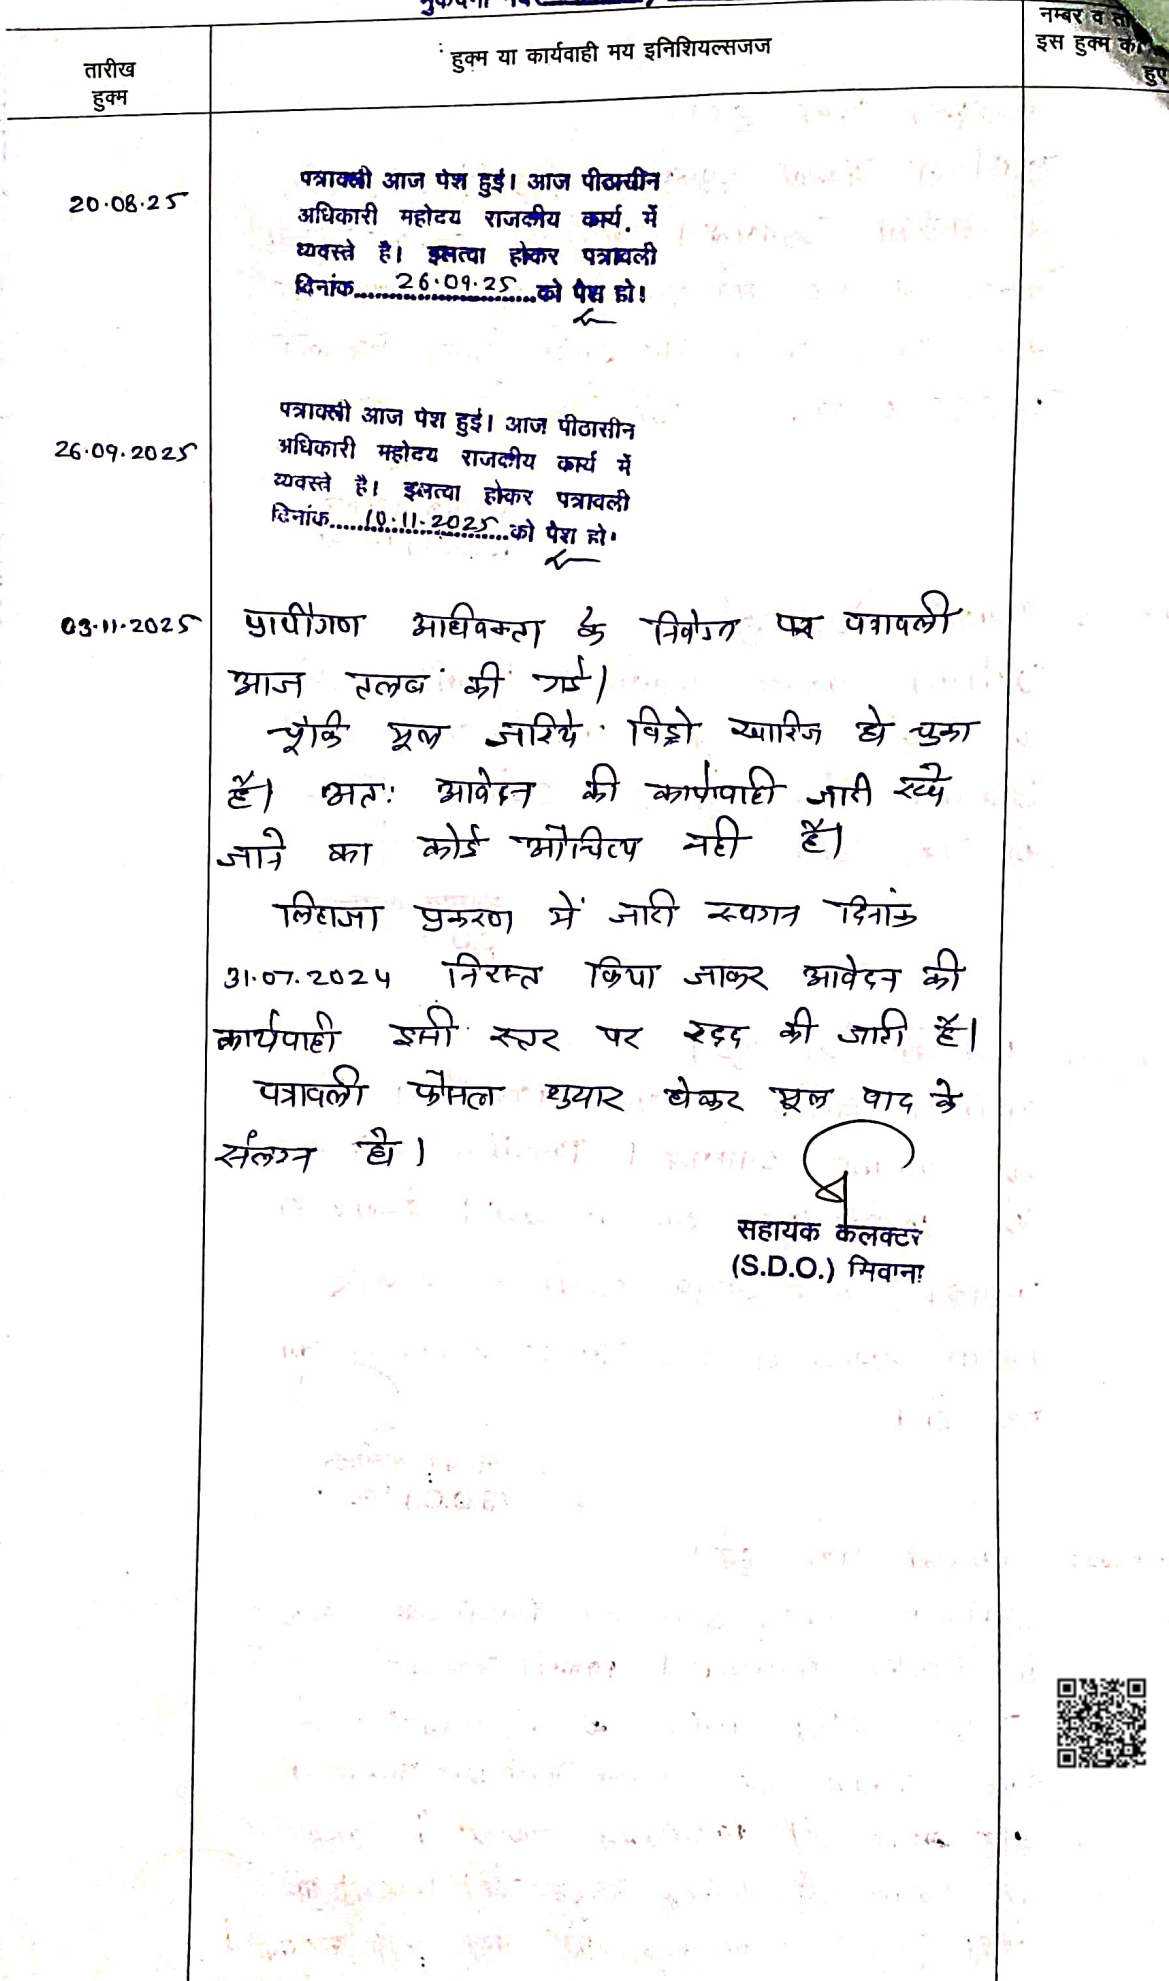 तारीख
हुक्म
हुक्म या कार्यवाही मय इनिशियल्सजज
नम्बर व
इस हुक्म की
हुए
20.08.25
पत्रावली आज पेश हुई। आज पीठासीन
अधिकारी महोदय राजकीय कार्य में
व्यवस्ते है। इसत्वा होकर पत्रावली
दिनांक 26.09.25 को पेश हो!
26.09.2025
पत्रावली आज पेश हुई। आज पीठासीन
अधिकारी महोदय राजकीय कार्य में
व्यवस्ते है। इसत्वा होकर पत्रावली
दिनांक 10.11.2025 को पेश हो।
03.11.2025
प्रार्थीगण अधिवक्ता के निवेदन पर पत्रावली
आज तलब की गई।
चूंकि मूल जरिये विड्रो खारिज हो चुका
है। अतः आवेदन की कार्यवाही जारी रखे
जाने का कोई औचित्य नही है।
लिहाजा प्रकरण में जारी स्थगन दिनांक
31.07.2024 निरस्त किया जाकर आवेदन की
कार्यवाही इसी स्तर पर रद्द की जाती है।
पत्रावली फैसल शुमार होकर मूल वाद के
संलग्न हो।
सहायक कलक्टर
(S.D.O.) सिवाना